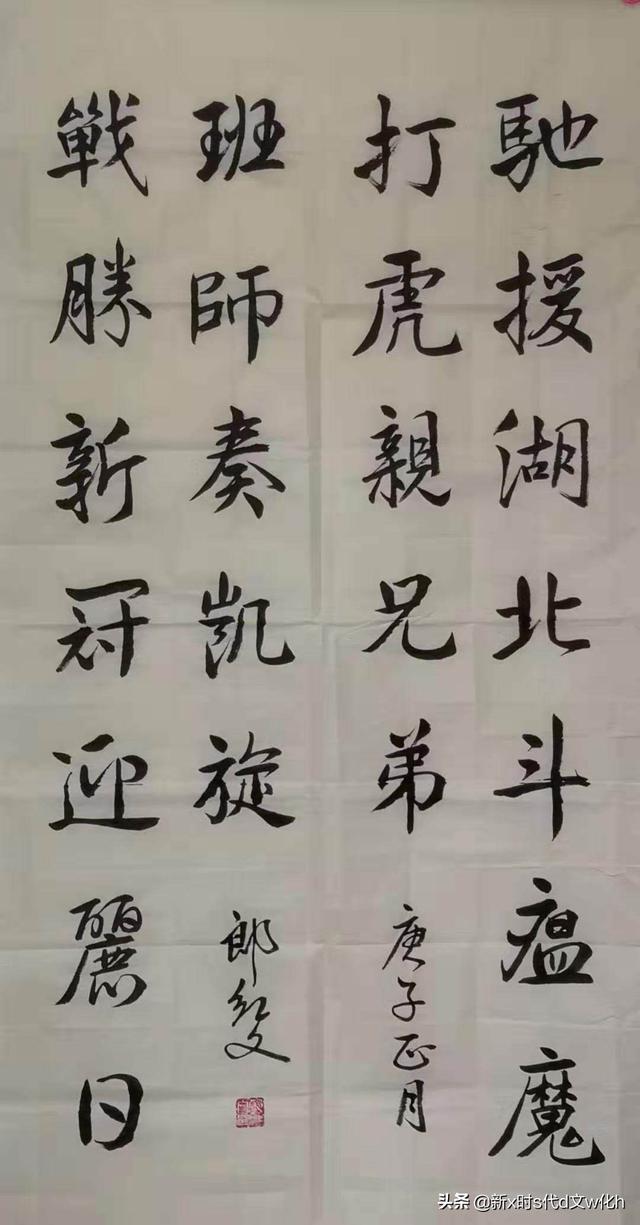 馳援湖北斗瘟魔
打虎親兄弟
庚子正月
戰勝新冠迎麗日
班師奏凱旋
郎红文
头条 @新x时s代d文w化h